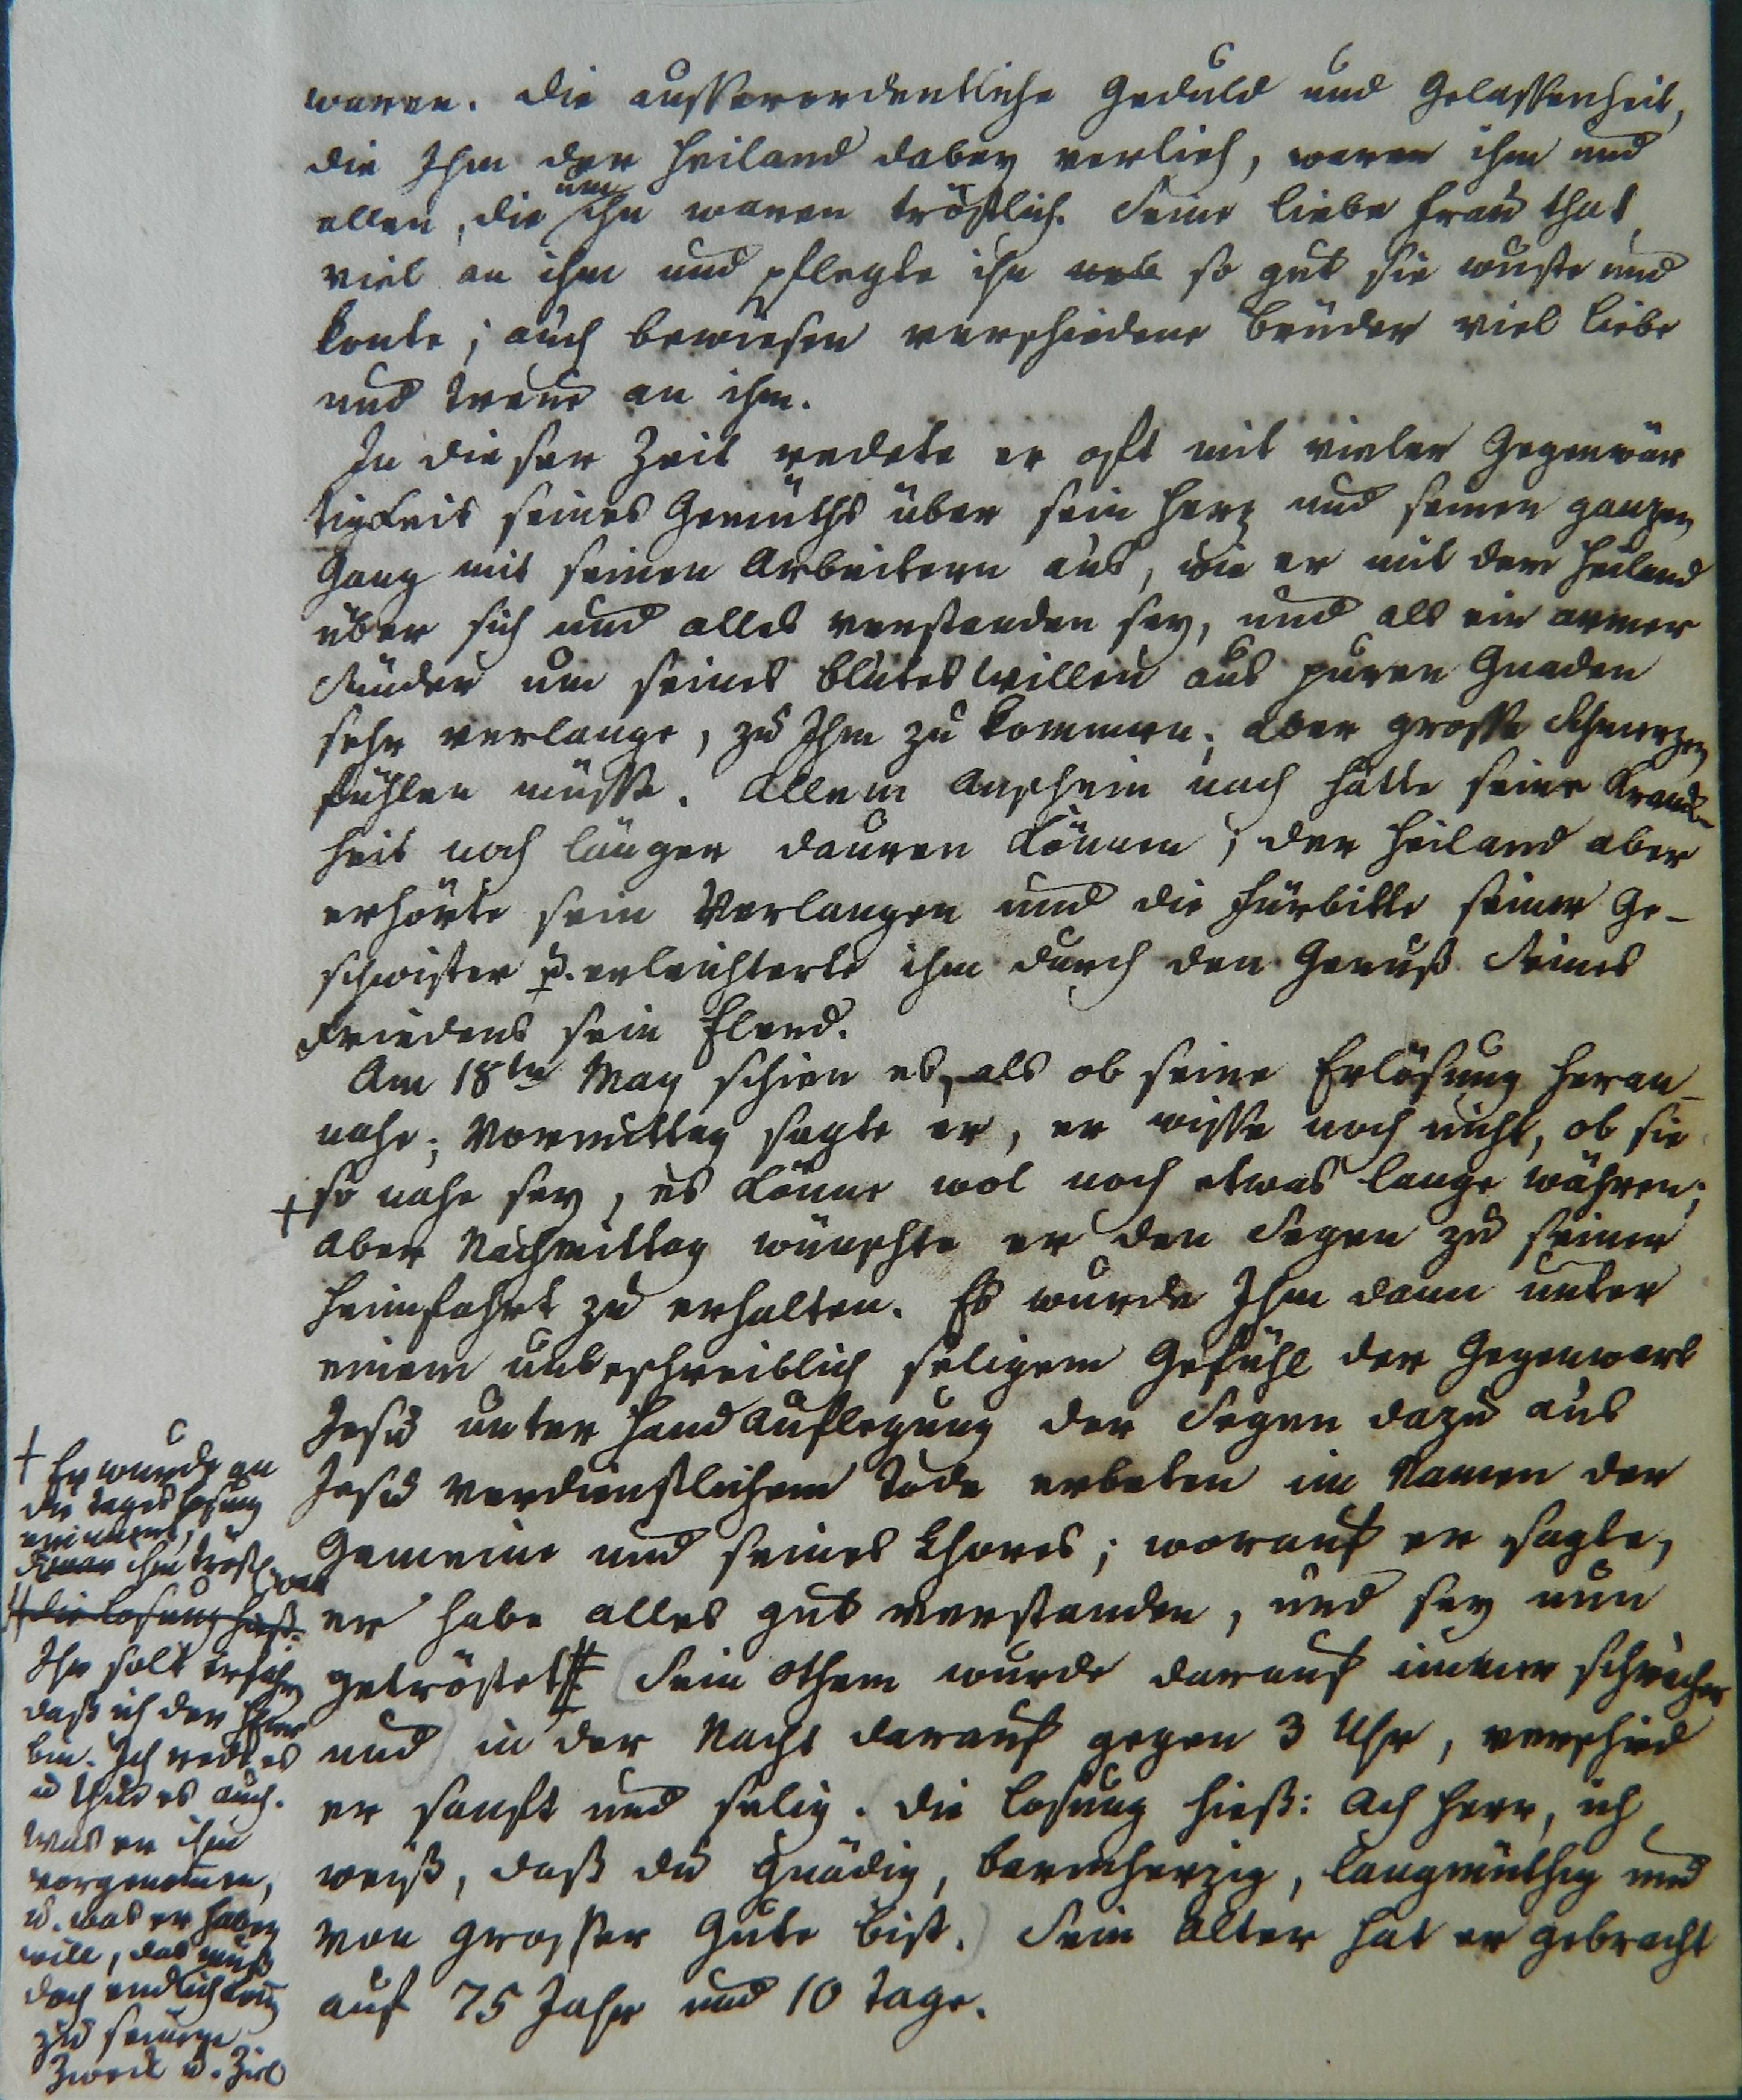 waren. Die ausserordentliche Geduld und Gelassenheit,
die Ihm der Heiland dabey verlieh, waren ihm und
allen, die um ihn waren tröstlich. Seine liebe Frau that
viel an ihm und pflegte ihn so gut sie wuste und
konte; auch bewiesen verschiedene Brüder viel Liebe
und Treue an ihm.
In dieser Zeit redete er oft mit vieler Gegenwär
tigkeit seines Gemüths über sein Herz und seinen ganzen
Gang mit seinen Arbeitern aus, wie er mit dem Heiland
über sich und alles verstanden sey, und als ein armer
Sünder um seines Blutes willen aus puren Gnaden
sehr verlange, zu Ihm zu kommen; aber grosse Schmerzen
fühlen müsse. Allem Anschein nach hätte seine Krank-
heit noch länger dauren können; der Heiland aber
erhörte sein Verlangen und die Fürbitte seiner Ge-
schwister u. erleichterte ihm durch den Genuß Seines
Friedens sein Elend.
Am 18ten May schien es, als ob seine Erlösung heran-
nahe; Vormittag sagte er, er wisse noch nicht, ob sie
+ so nahe sey, es könne wol noch etwas lange währen;
aber Nachmittag wünschte er den Segen zu seiner
Heimfahrt zu erhalten. Es wurde Ihm dann unter
einem unbeschreiblich seligem Gefühl der Gegenwart
Jesu unter Hand Auflegung der Segen dazu aus
Jesu verdienstlichem Tode erbeten im Namen der
Gemeine und seines Chores; worauf er sagte,
er habe alles gut verstanden, und sey nun
getröstet # (Sein Othem wurde darauf immer schwächer
und) in der Nacht darauf gegen 3 Uhr, verschied
er sanft und selig. (Die Losung hieß: Ach Herr, ich
weiß, daß du gnädig, barmherzig, langmüthig und
von grosser Güte bist.) Sein Alter hat er gebracht
auf 75 Jahr und 10 Tage.
+ Er wurde an
die Tages losung
erinnert,
ihm tröstl. war
# die Losung hieß:
Ihr solt erfahren
daß ich der Herr
bin. Ich rede es
u thue es auch.
Was er ihm
vorgenommen,
u. was er haben
will, das muß
doch endlich kom̄
zu seinem
Zweck u. Ziel